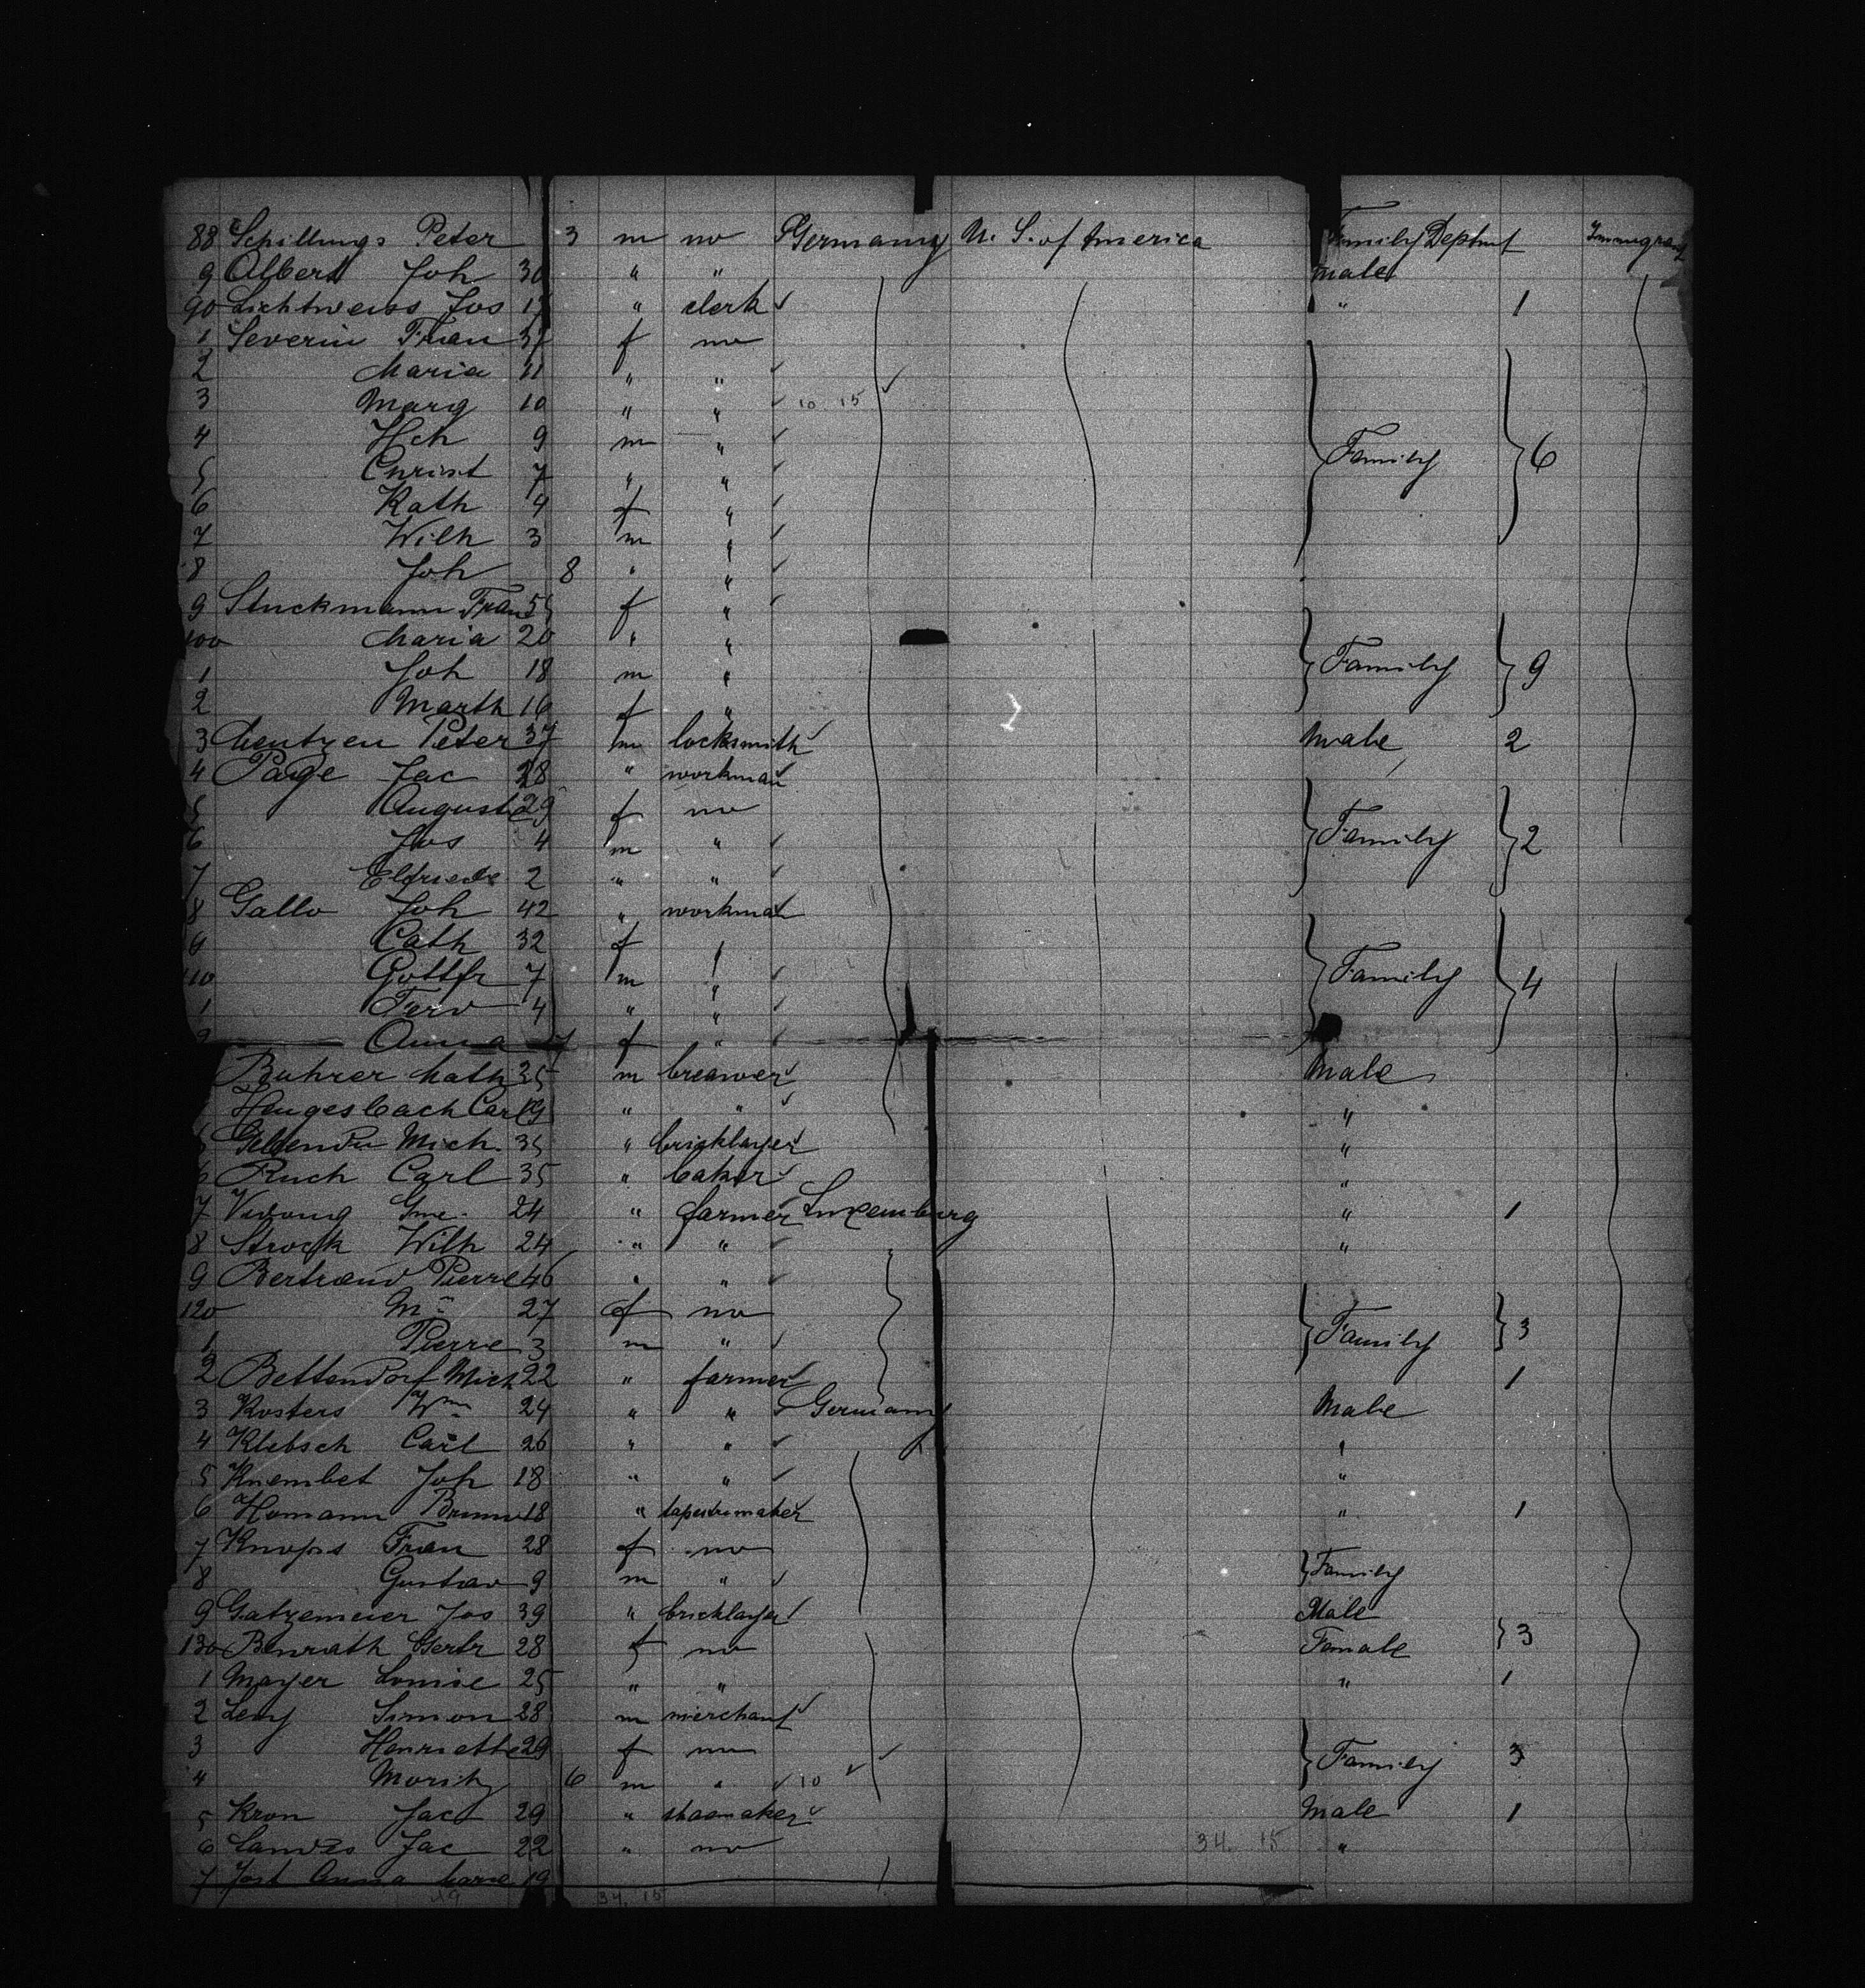 88 Schillings Peter 3 m no Germany U. S. of America Family Deptmt Immigrant
9 Albert Joh 30 " " male
90 Lichtweiss Jos 17 " clerk " 1
1 Severin Frau 37 f no
2 Maria 11 " "
3 Marg 10 " " 10 15
4 Hch 9 m " Family 6
5 Christ 7 " "
6 Kath 4 f "
7 Wilh 3 m "
8 Joh 8 " "
9 Stuckmann Frau 55 f "
100 Maria 20 " "
1 Joh 18 m " Family 9
2 Marth 16 f "
3 Mentzen Peter 37 m locksmith Male 2
4 Page Jac 28 " workman
5 Auguste 29 f no
6 Jos 4 m " Family 2
7 Elfriede 2 " "
8 Gallo Joh 42 " workman
9 Cath 32 f "
110 Gottfr 7 m " Family 4
1 Ferd 4 " "
2 Anna f "
Buhrer Math 35 m breawer Male
Hengesbach Carl 19 " " "
Mich. 35 " bricklayer "
6 Ruch Carl 35 " baker "
7 Gme. 24 " farmer Luxemburg " 1
8 Strock Wilh 24 " " "
9 Bertrand Pierre 46 " "
120 M 27 f no
1 Pierre 3 m " Family 3
2 Bettendorf Mich 22 " farmer 1
3 Kosters Wm 24 " " Germany Male
4 Klebsch Carl 26 " " "
5 Knembet Joh 18 " " "
6 Homann Bruno 18 " " 1
7 Knops Frau 28 f no
8 Gustav 9 m " Family
9 Gatzemeier Jos 39 " bricklayer Male
130 Benrath Gertr 28 f no Female 3
1 Mayer Louise 25 " " " 1
2 Levy Simon 28 m merchant
3 Henriette 29 f no Family 3
4 Moritz 6 m " 10
5 Kron Jac 29 " shoemaker Male 1
6 Landes Jac 22 " no 34. 15 "
7 Jost Anna Marie 19
49 34. 15